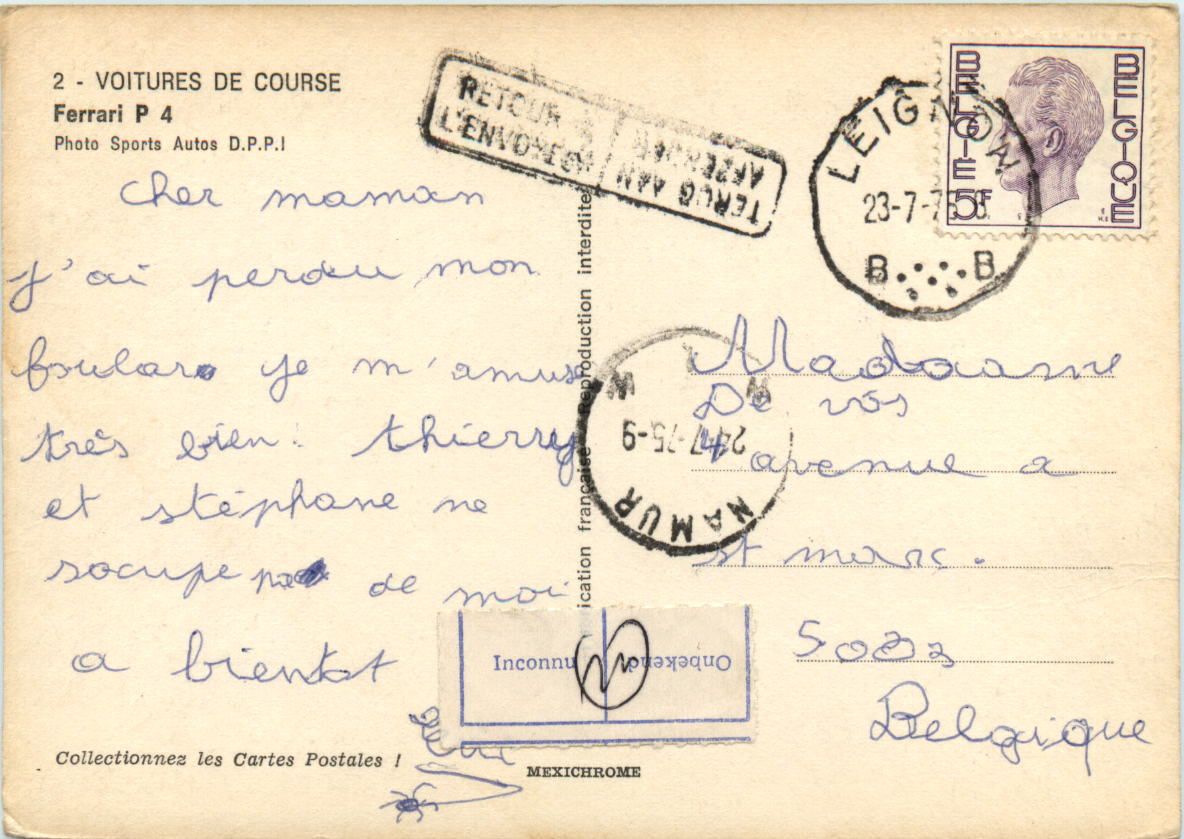 2 - VOITURES DE COURSE
Ferrari P 4
Photo Sports Autos D.P.P.I
RETOUR À
L'ENVOYEUR
TERUG AAN
AFZENDER
LEIGNON
23-7-75
B B
BELGIE 5F
BELGIQUE
cher maman
j'ai perdu mon
foulard je m'amuse
très bien. thierry
et stéphane ne
socupe pas de moi
a bientot
Madaame
De vos
4 avenue a
st marc.
Belgique
NAMUR
24-7-75-9
ication française Reproduction interdite
Inconnu
Onbekend
Collectionnez les Cartes Postales !
MEXICHROME